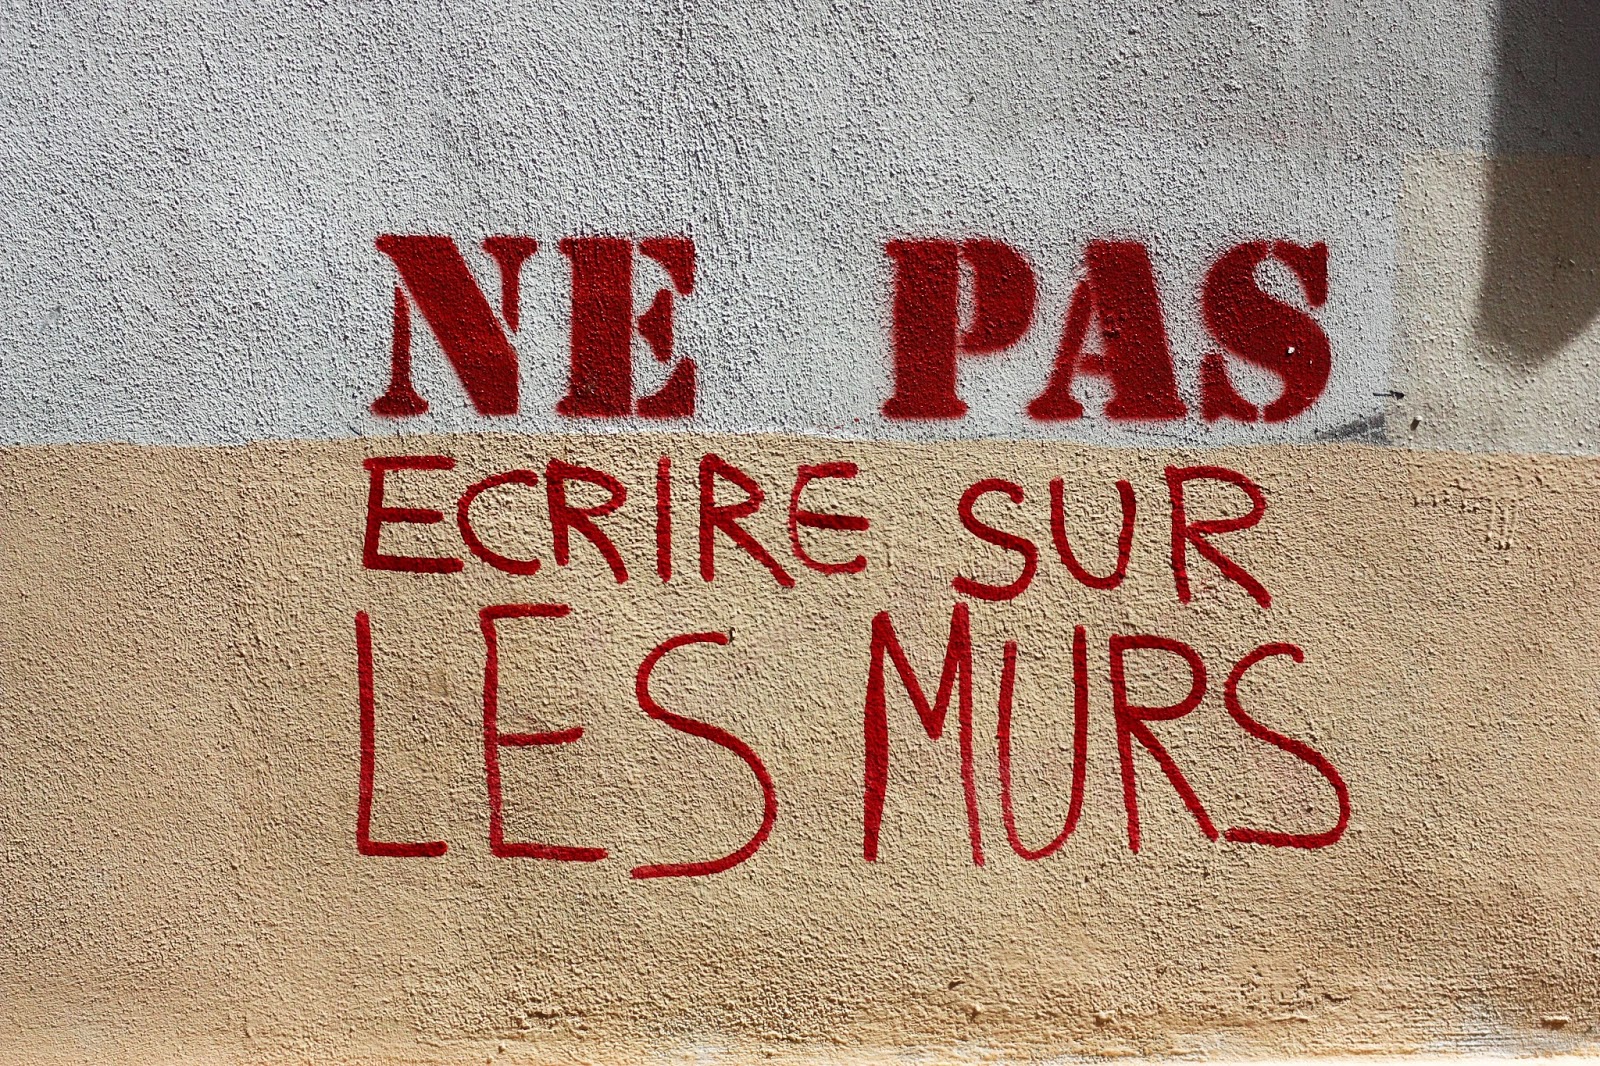 NE PAS
ECRIRE SUR
LES MURS